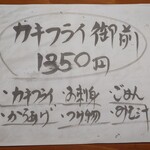 カキフライ御前
1350円
・カキフライ ・お刺身 ・ごはん
・からあげ ・つけ物 ・みそ汁